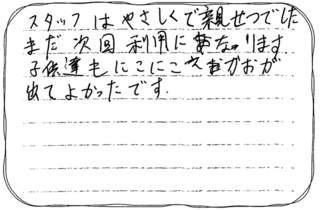 スタッフはやさしくて親せつでした
まだ次回利用に なります
子供達もにこにこ えがおが
出てよかったです.